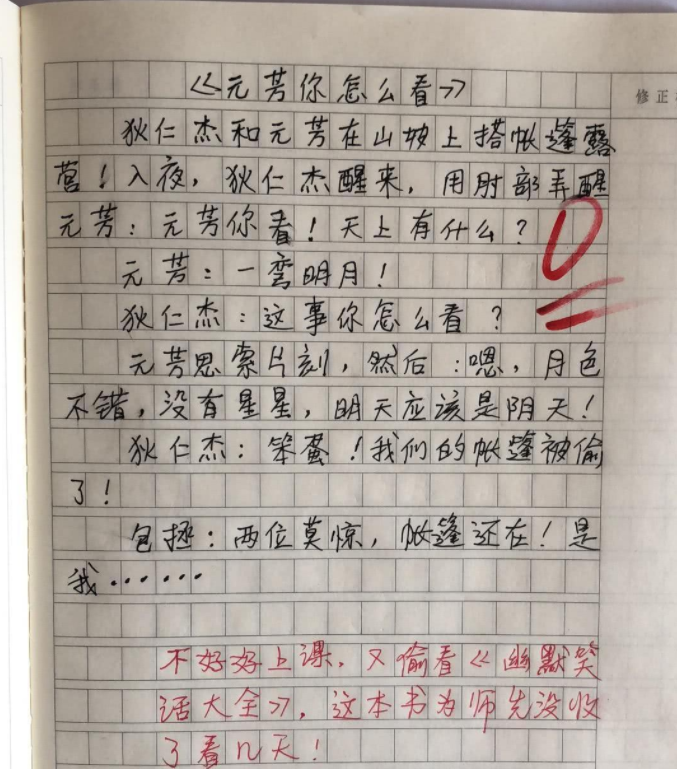 《元芳你怎么看》
修正
狄仁杰和元芳在山坡上搭帐篷露
营！入夜，狄仁杰醒来，用肘部弄醒
元芳：元芳你看！天上有什么？
0
元芳：一弯明月！
狄仁杰：这事你怎么看？
元芳思索片刻，然后：嗯，月色
不错，没有星星，明天应该是阴天！
狄仁杰：笨蛋！我们的帐篷被偷
了！
包拯：两位莫惊，帐篷还在！是
我······
不好好上课，又偷看《幽默笑
话大全》，这本书为师先没收
了看几天！